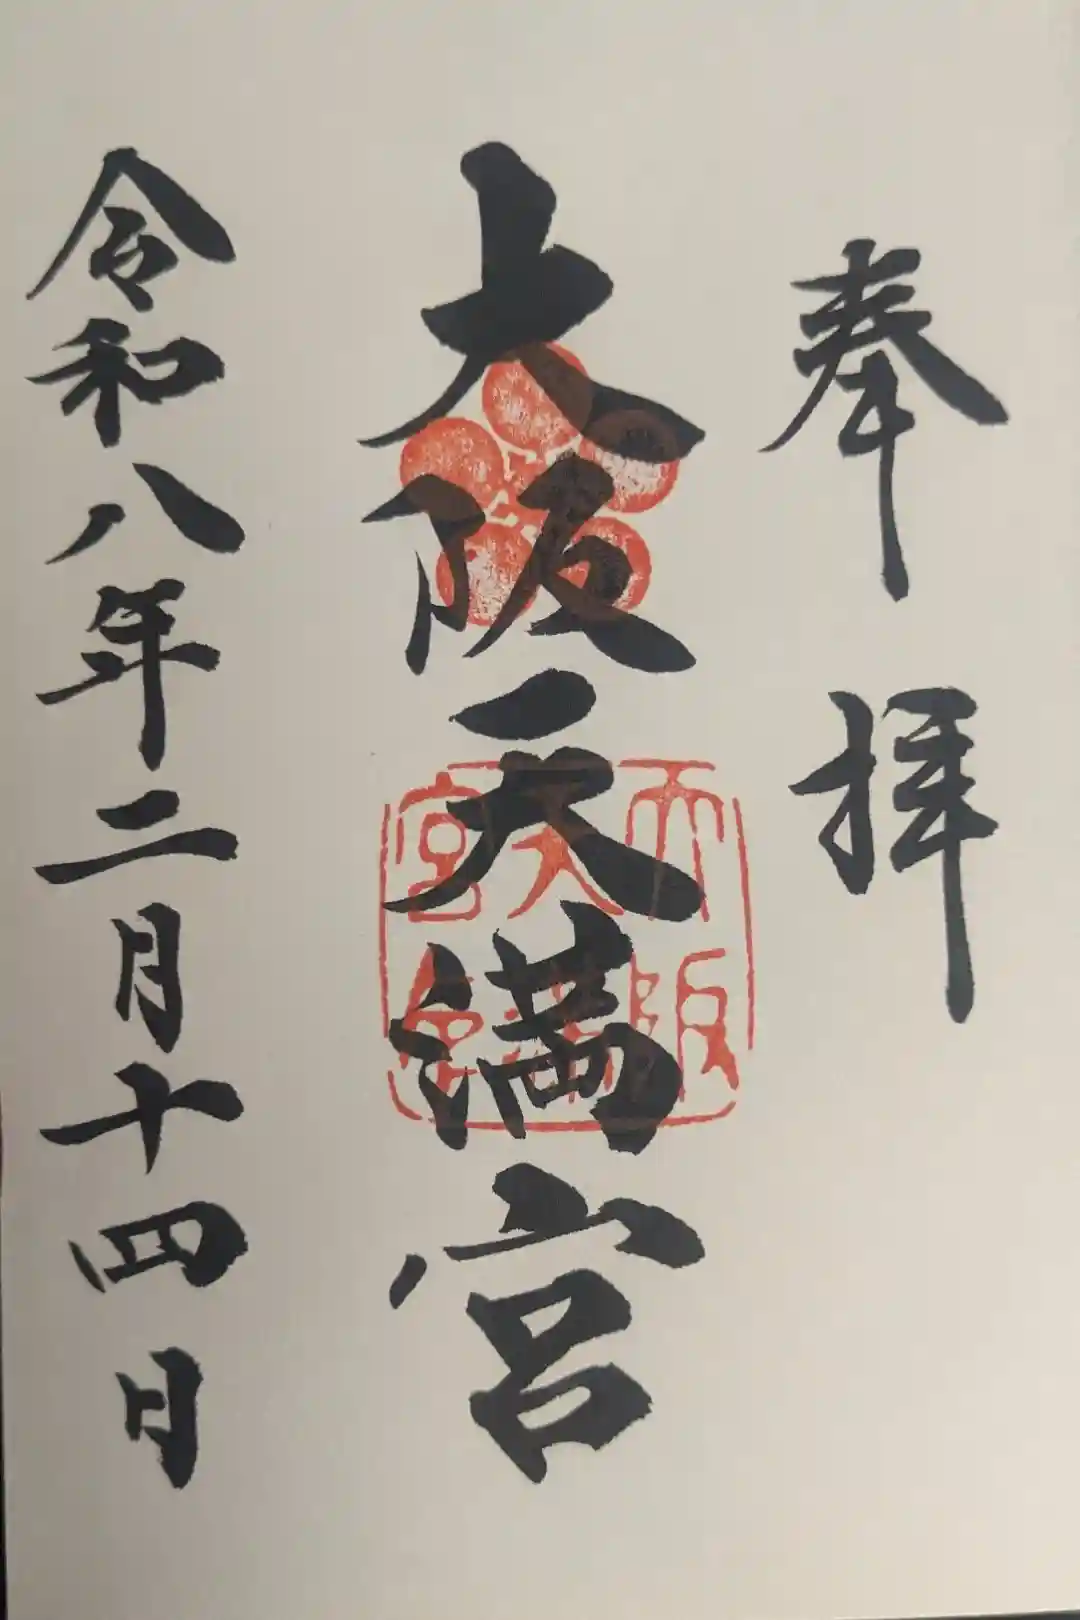 奉拝
大阪天満宮
令和八年二月十四日
大阪
天満
宮